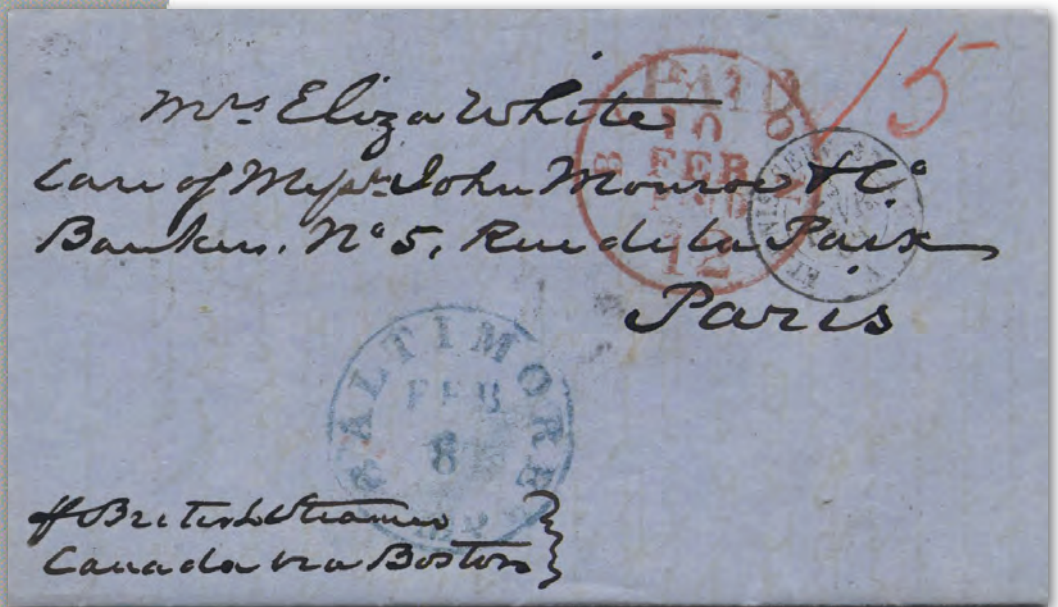 15
Mrs Eliza White
Care of Messrs John Monroe & Co
Bankers. No 5, Rue de la Paix
Paris
PAID
10
FEB
12
BALTIMORE
FEB
8
Md
British Steamer
Canada via Boston